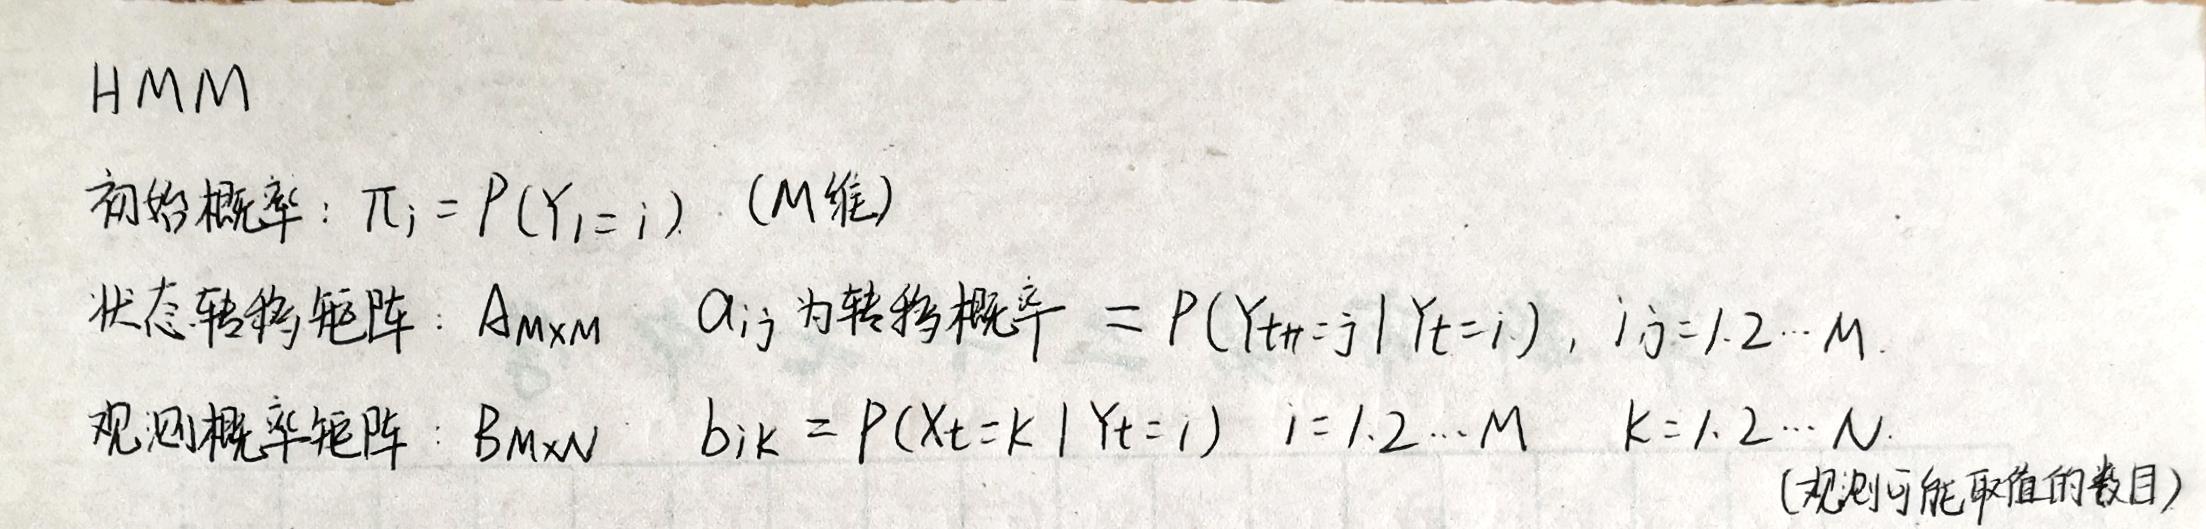 HMM
初始概率: πi = P(Y1=i). (M维)
状态转移矩阵: AM×M aij 为转移概率 = P(Yt+1=j | Yt=i), i,j=1.2…M.
观测概率矩阵: BM×N bik = P(Xt=k | Yt=i) i=1.2…M k=1.2…N.
(观测可能取值的数目)